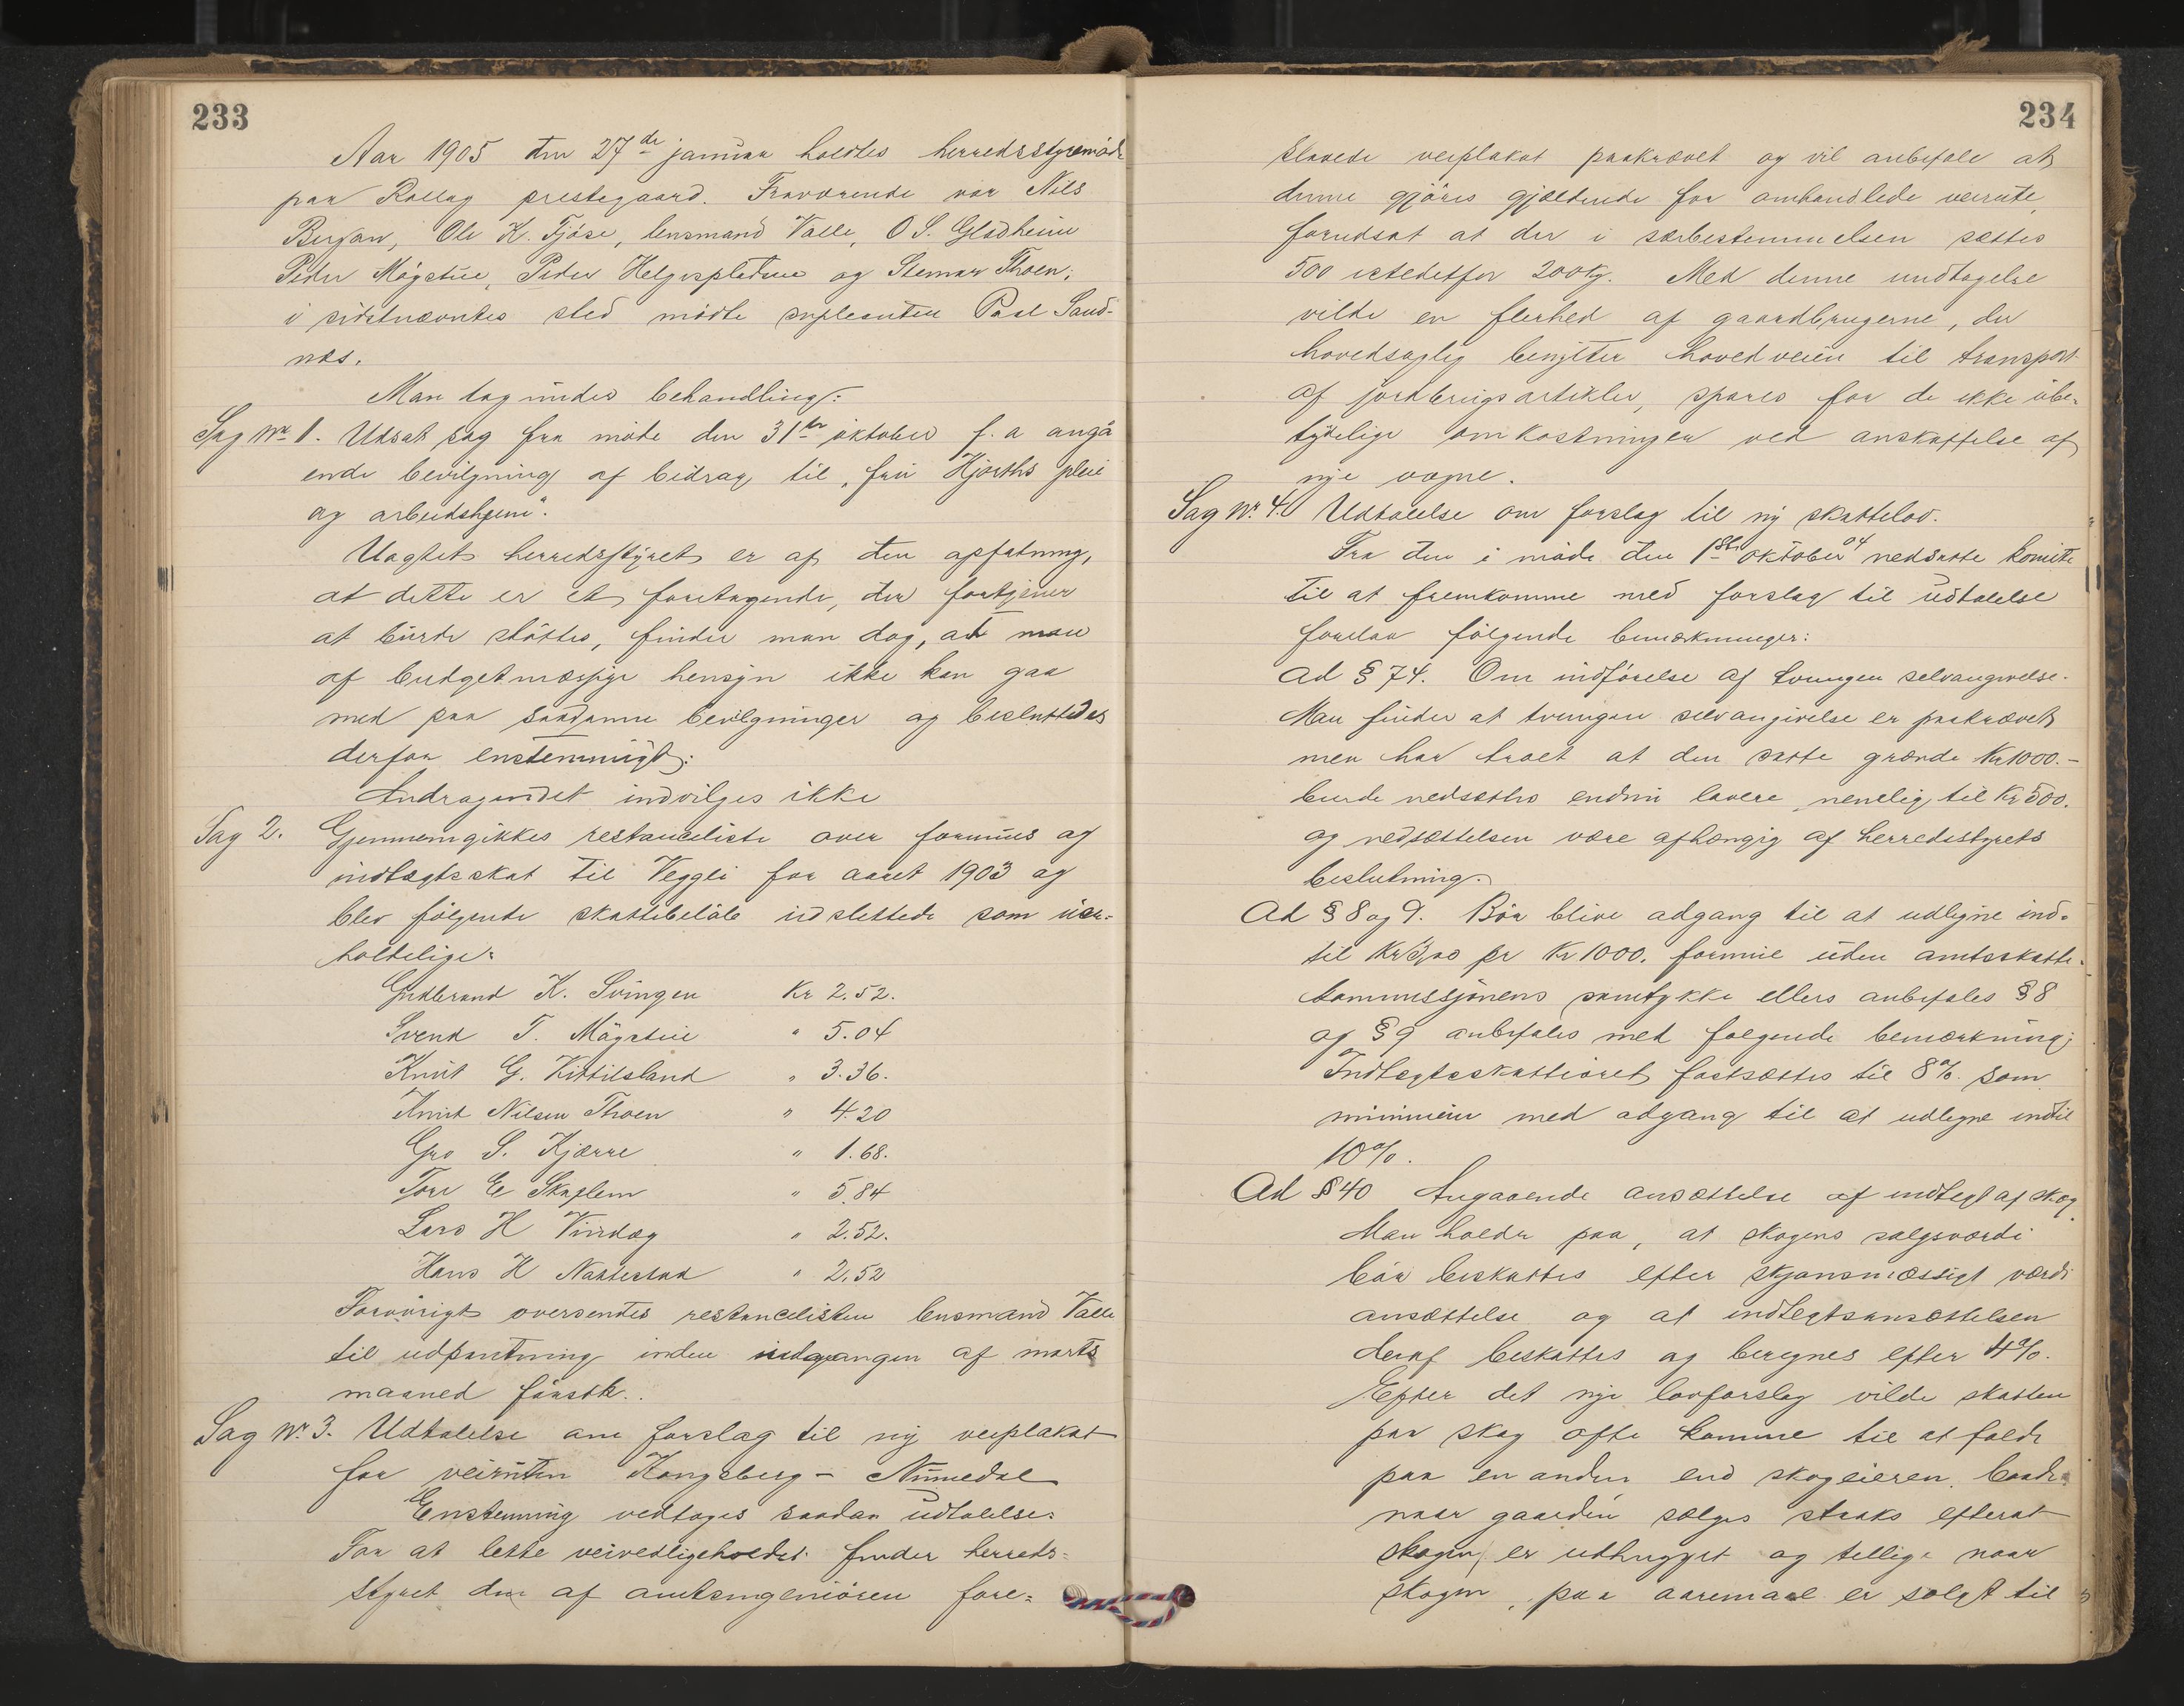 233
Aar 1905 den 27de januar holdtes herredsstyremöde
paa Rollag prestegaard. Fraværende var Nils
Bergan, Ole K. Fjöse, lensmand Valle, O S. Gladheim
Peder Mögstue, Peder Helgespladene og Steinar Thoen;
i sidstnævntes sted mödte supleanten Paal Sand-
næs.
Man tog under behandling:
Sag Nr 1. Udsat sag fra möde den 31te oktober f. a angå
ende bevilgning af bidrag til „fru Hjorths pleie
og arbeidshjem".
Uagtet herredsstyret er af den opfatning,
at dette er et foretagende, der fortjener
at burde stöttes, finder man dog, at man
af budgetmæssige hensyn ikke kan gaa
med paa saadanne bevilgninger og besluttedes
derfor enstemmigt:
Andragendet indvilges ikke
Sag 2. Gjennemgikkes restanceliste over formues og
indtægtsskat til Veggli for aaret 1903 og
blev fölgende skattebelöb udslettede som uer-
holdelige:
Gudbrand K. Svingen Kr 2.52.
Svend T. Mögstue " 5.04
Knut G. Kittilsland " 3.36.
Knut Nilsen Thoen " 4.20
Gro S. Kjærre " 1.68.
Tore E Skaplem " 5.84
Lars H Vindeg " 2.52.
Hans H Nattestad " 2.52
Forövrigt oversendtes restancelisten lensmand Valle
til udpantning inden udgangen af marts
maaned förstk..
Sag Nr. 3. Udtalelse om forslag til ny veiplakat
for veiruten Kongsberg - Numedal
Enstemmig vedtoges saadan udtalelse:
For at lette veivedligeholdet finder herreds-
styret den af amtsingeniören fore-
234
slaaede veiplakat paakrævet og vil anbefale at
denne gjöres gjældende for omhandlede veirute,
forudsat at der i særbestemmelsen sættes
500 istedetfor 200 kg. Med denne undtagelse
vilde en flerhed af gaardbrugerne, der
hovedsaglig benytter hovedveien til transport
af jordbrugsartikler, spares for de ikke ube-
tydelige omkostninger ved anskaffelse af
nye vogne.
Sag Nr. 4. Udtalelse om forslag til ny skattelov.
Fra den i möde den 1ste oktober 04 nedsatte komite
til at fremkomme med forslag til udtalelse
forelaa fölgende bemærkninger:
Ad § 74. Om indförelse af tvungen selvangivelse.
Man finder at tvungen selvangivelse er paakrævet
men har troet at den satte grænde Kr 1000.-
burde nedsættes endnu lavere nemlig til Kr 500.
og nedsættelsen være afhængig af herredsstyrets
beslutning.
Ad § 8 og 9. Bör blive adgang til at udligne ind-
til Kr 3,00 pr Kr 1000. formue uden amtsskatte-
kommissjonens samtykke ellers anbefales § 8
og § 9 anbefales med fölgende bemærkning;
Indtægtsskattöret fastsættes til 8%. som
minimum med adgang til at udligne indtil
10%.
Ad § 40 Angaaende ansættelse af indtegt af skog
Man holder paa, at skogens salgsværdi
bör beskattes efter skjönsmæssigt værdi
ansættelse og at indtegtsansættelsen
deraf beskattes og beregnes efter 4%.
Efter det nye lovforslag vilde skatten
paa skog ofte komme til at falde
paa en anden end skogeieren. baade
naar gaarden sælges straks efterat
skogen er udhugget og tillige naar
skogen, paa aaremaal er solgt til